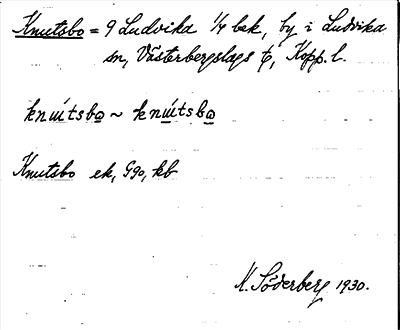 Knutsbo = 9 Ludvika 1/4 bek, by i Ludvika
sn, Västerbergslags t, Kopp. l.
knútsbo ~ knútsbo
Knutsbo ek, G90, kb
K. Söderberg 1930.